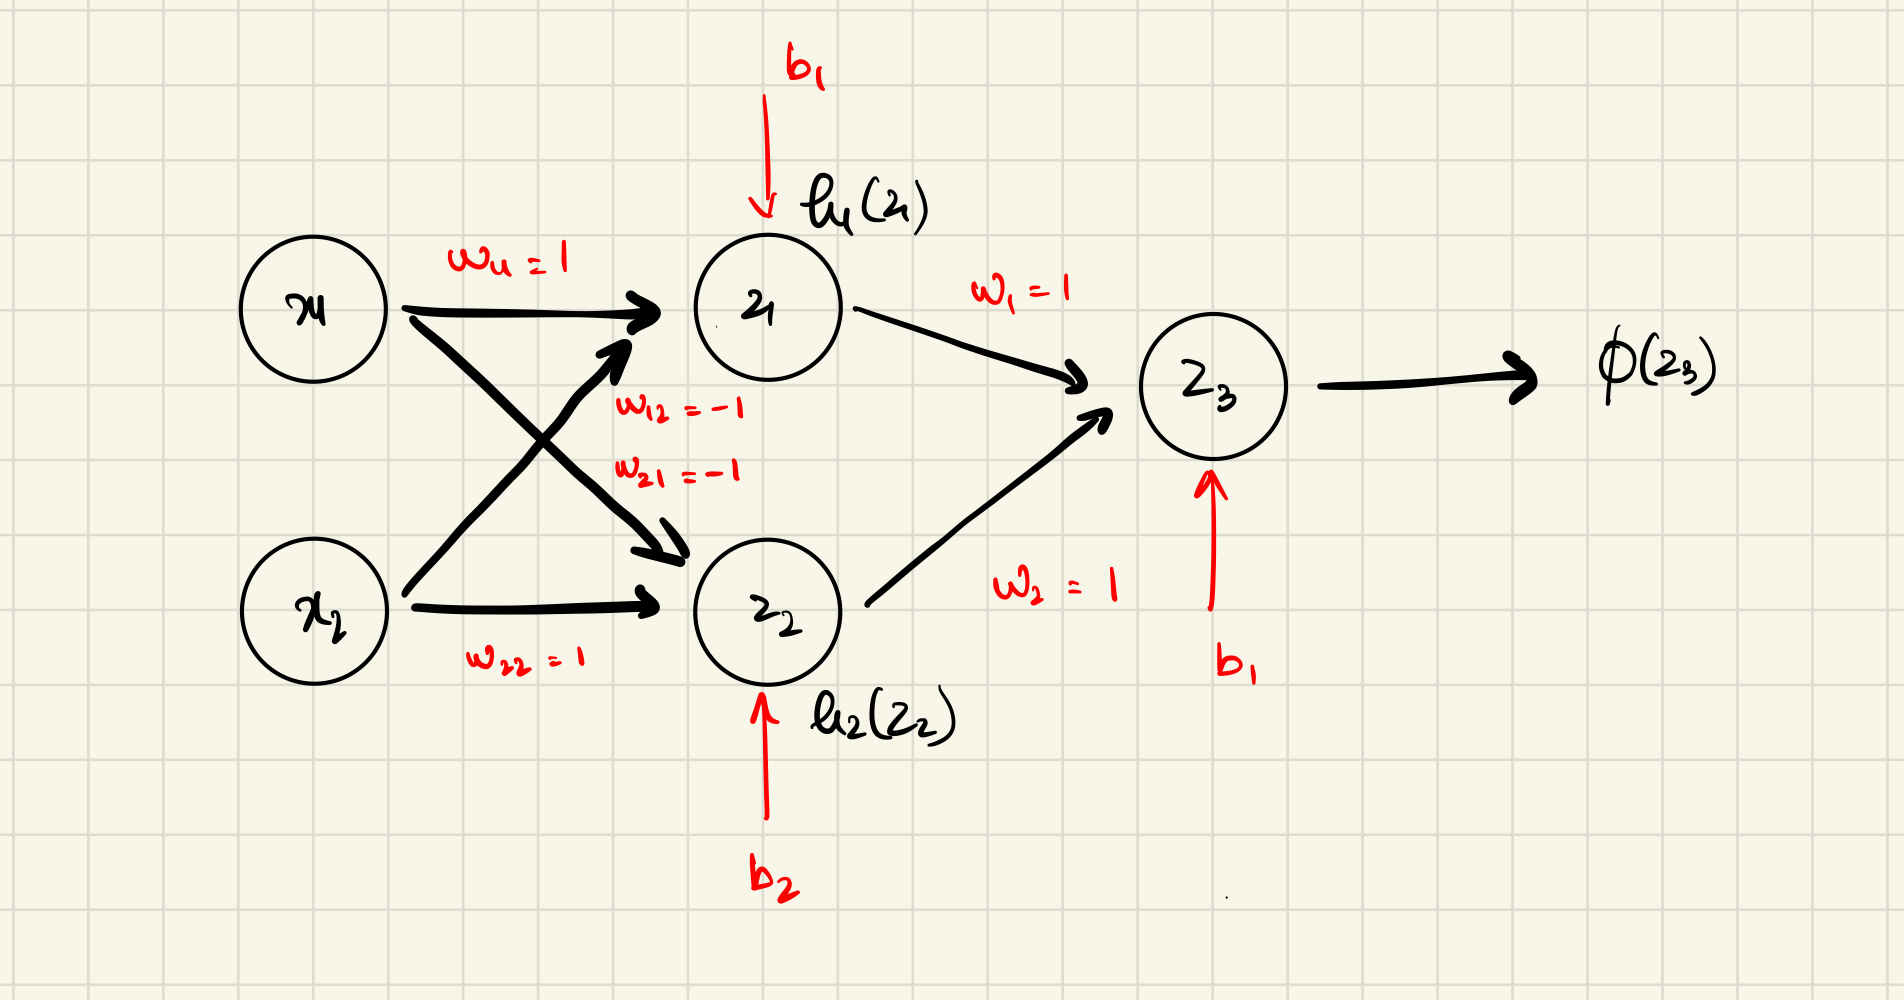 b₁
h₁(z₁)
w₁₁ = 1
x₁
z₁
w₁ = 1
z₃
φ(z₃)
w₁₂ = -1
w₂₁ = -1
x₂
z₂
w₂ = 1
w₂₂ = 1
b₁
h₂(z₂)
b₂